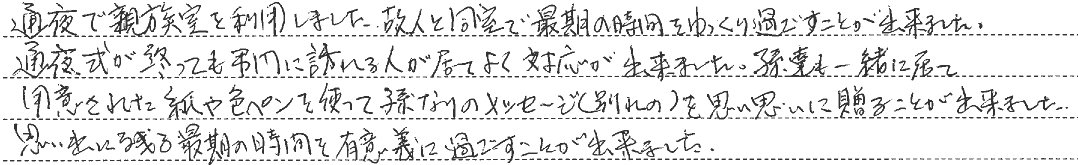 通夜で親族室を利用しました。故人と同室で最期の時間をゆっくり過ごすことが出来ました。
通夜式が終っても弔問に訪れる人が居てよく対応が出来ました。孫達も一緒に居て
用意された紙や色ペンを使って孫なりのメッセージ(別れの)を思い思いに贈ることが出来ました。
思い出に残る最期の時間を有意義に過ごすことが出来ました。